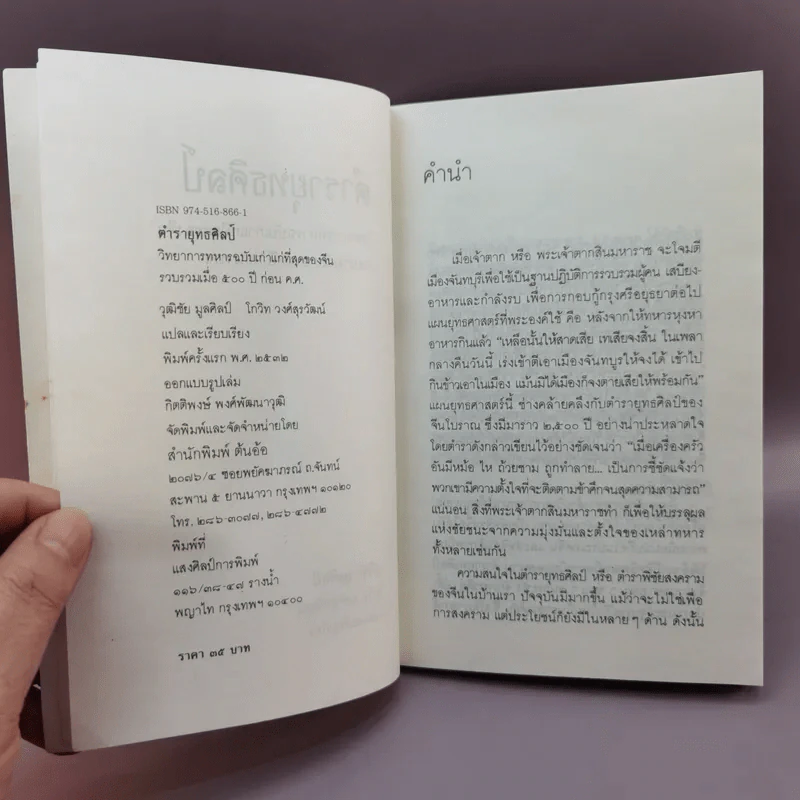 ISBN 974-516-866-1
ตำรายุทธศิลป์
วิทยาการทหารฉบับเก่าแก่ที่สุดของจีน
รวบรวมเมื่อ ๕๐๐ ปี ก่อน ค.ศ.
วุฒิชัย มูลศิลป์ โกวิท วงศ์สุรวัฒน์
แปลและเรียบเรียง
พิมพ์ครั้งแรก พ.ศ. ๒๕๓๒
ออกแบบรูปเล่ม
กิตติพงษ์ พงศ์พัฒนาวุฒิ
จัดพิมพ์และจัดจำหน่ายโดย
สำนักพิมพ์ ต้นอ้อ
๒๐๗๖/๔ ซอยพยัคฆาภรณ์ ถ.จันทน์
สะพาน ๕ ยานนาวา กรุงเทพฯ ๑๐๑๒๐
โทร. ๒๘๖-๓๐๗๗, ๒๘๖-๔๗๗๒
พิมพ์ที่
แสงศิลป์การพิมพ์
๑๑๖/๓๘-๔๗ รางน้ำ
พญาไท กรุงเทพฯ ๑๐๔๐๐
ราคา ๓๕ บาท
คำนำ
เมื่อเจ้าตาก หรือ พระเจ้าตากสินมหาราช จะโจมตี
เมืองจันทบุรีเพื่อใช้เป็นฐานปฏิบัติการรวบรวมผู้คน เสบียง-
อาหารและกำลังรบ เพื่อการกอบกู้กรุงศรีอยุธยาต่อไป
แผนยุทธศาสตร์ที่พระองค์ใช้ คือ หลังจากให้ทหารหุงหา
อาหารกินแล้ว "เหลือนั้นให้สาดเสีย เทเสียจงสิ้น ในเพลา
กลางคืนวันนี้ เร่งเข้าตีเอาเมืองจันทบูรให้จงได้ เข้าไป
กินข้าวเอาในเมือง แม้นมิได้เมืองก็จงตายเสียให้พร้อมกัน"
แผนยุทธศาสตร์นี้ ช่างคล้ายคลึงกับตำรายุทธศิลป์ของ
จีนโบราณ ซึ่งมีมาราว ๒,๕๐๐ ปี อย่างน่าประหลาดใจ
โดยตำราดังกล่าวเขียนไว้อย่างชัดเจนว่า "เมื่อเครื่องครัว
อันมีหม้อ ไห ถ้วยชาม ถูกทำลาย... เป็นการชี้ชัดแจ้งว่า
พวกเขามีความตั้งใจที่จะติดตามข้าศึกจนสุดความสามารถ"
แน่นอน สิ่งที่พระเจ้าตากสินมหาราชทำ ก็เพื่อให้บรรลุผล
แห่งชัยชนะจากความมุ่งมั่นและตั้งใจของเหล่าทหาร
ทั้งหลายเช่นกัน
ความสนใจในตำรายุทธศิลป์ หรือ ตำราพิชัยสงคราม
ของจีนในบ้านเรา ปัจจุบันมีมากขึ้น แม้ว่าจะไม่ใช่เพื่อ
การสงคราม แต่ประโยชน์ก็ยังมีในหลาย ๆ ด้าน ดังนั้น